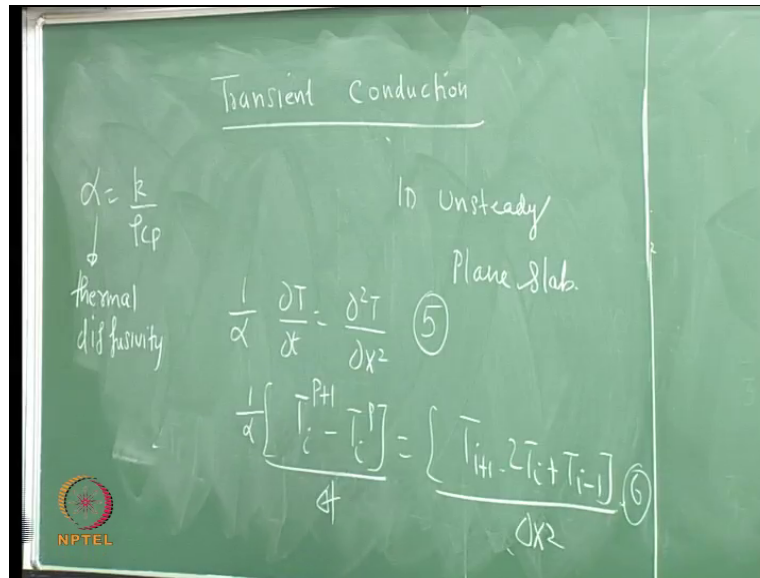 Transient Conduction
α = k/ρcp
thermal
diffusivity
1D Unsteady
Plane Slab.
1/α ∂T/∂t = ∂²T/∂x² ⑤
1/α [T_i^{p+1} - T_i^p]/Δt = [T_{i+1} - 2T_i + T_{i-1}]/Δx² ⑥
NPTEL